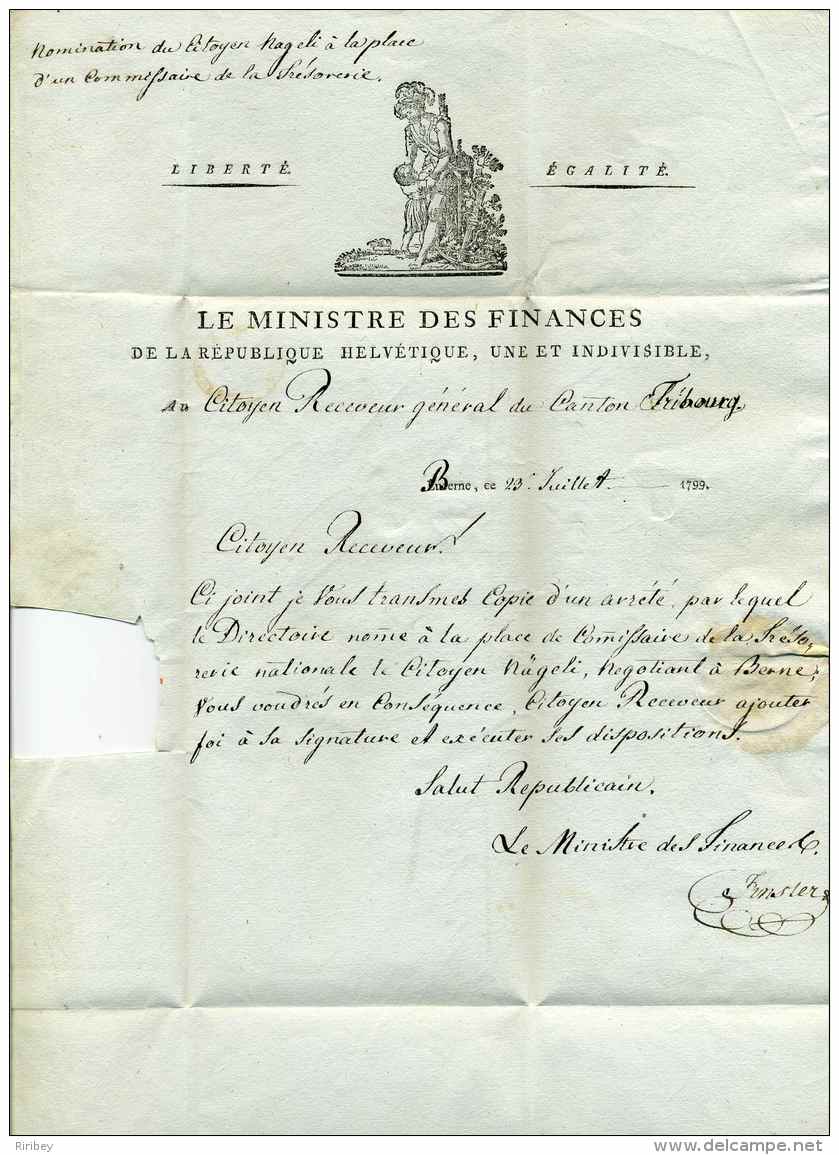 Nomination du Citoyen Nägeli à la place
d'un Commissaire de la Trésorerie.
LIBERTÉ. ÉGALITÉ.
LE MINISTRE DES FINANCES
DE LA RÉPUBLIQUE HELVÉTIQUE, UNE ET INDIVISIBLE,
Au Citoyen Receveur général du Canton Fribourg.
Berne, ce 23e Juillet 1799.
Citoyen Receveur!
Ci joint je Vous transmes Copie d'un arrété, par lequel
le Directoire nom̄e à la place de Com̄issaire de la Tréso,,
rerie nationale le Citoyen Nägeli, Negotiant à Berne;
Vous voudrés en Conséquence, Citoyen Receveur ajouter
foi à sa signature et exécuter ses dispositions.
Salut Republicain.
Le Ministre des Finances.
Finsler
Riribey
www.delcampe.net